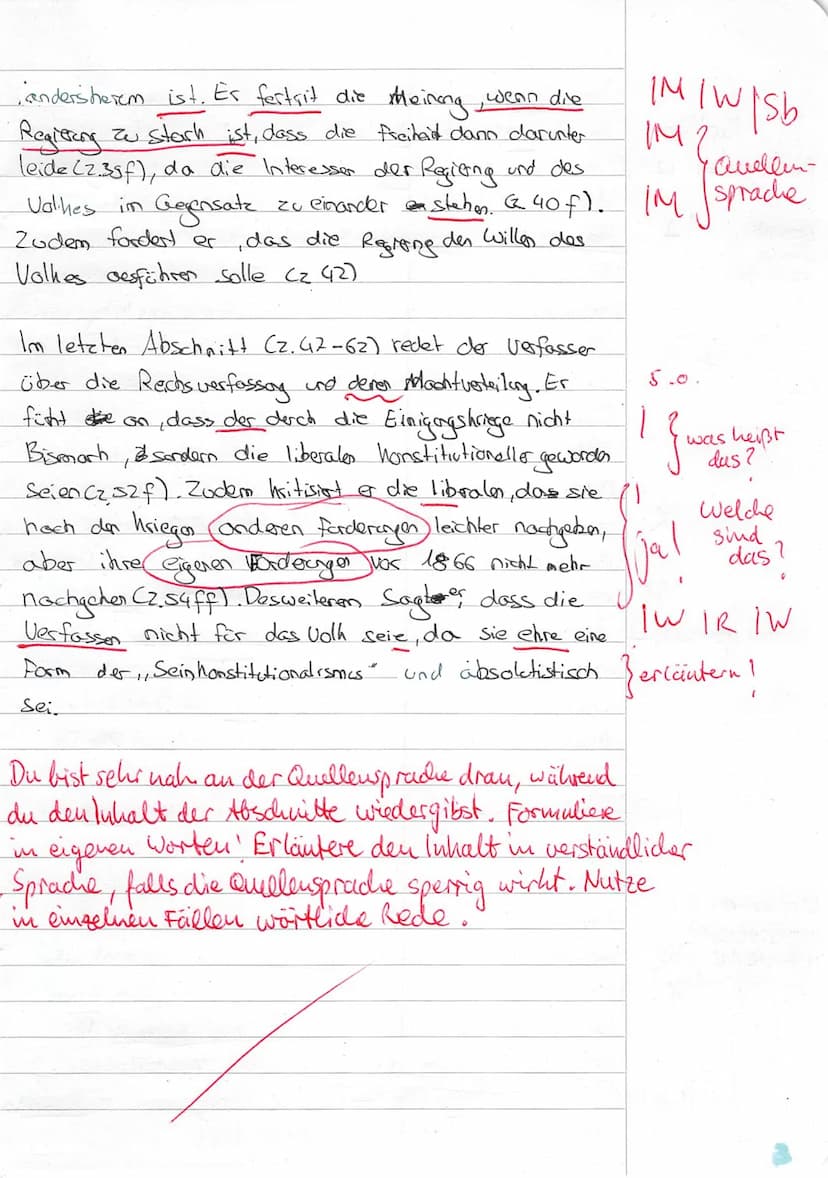 andersherum ist. Er fertrit die Meinung, wenn die |M |W |Sb
Regierung zu stark ist, dass die Freiheit dann darunter |M
leide (Z.39f), da die Interessen der Regierung und des Quellen-
Volkes im Gegensatz zu einander stehen. (Z 40f). |M sprache
Zudem fordert er, das die Regierung den Willen des
Volkes ausführen solle (Z 42)
Im letzten Abschnitt (Z.42-62) redet der Verfasser
über die Reichsverfassung und deren Machtverteilung. Er s.o.
führt an, dass der durch die Einigungskriege nicht | was heißt
Bismark, sondern die liberalen konstitutioneller geworden das?
seien (Z,52f). Zudem kritisiert er die liberalen, das sie |
nach den Kriegen anderen forderungen leichter nachgeben, Welche
aber ihre eigenen Forderungen vor 1866 nicht mehr ja! sind das?
nachgehen (Z.54ff). Desweiteren sagt er, dass die
Verfassen nicht für das Volk seie, da sie ehre eine |W |R |W
Form der „Seinkonstitutionalismus" und absolutistisch erläutern!
sei.
Du bist sehr nah an der Quellensprache dran, während
du den Inhalt der Abschnitte wiedergibst. Formuliere
in eigenen Worten! Erläutere den Inhalt in verständlicher
Sprache, falls die Quellensprache sperrig wirkt. Nutze
in einzelnen Fällen wörtliche Rede.
3